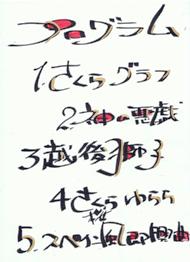 プログラム
1.さくらグラフ
2.神の悪戯
3越後獅子
4さくらゆらら
桜
5.スペイン風即興曲